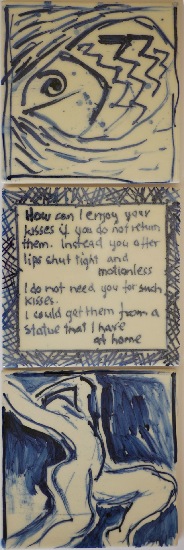 How can I enjoy your
kisses if you do not return
them. Instead you offer
lips shut tight and
motionless
I do not need you for such
kisses.
I could get them from a
statue that I have
at home